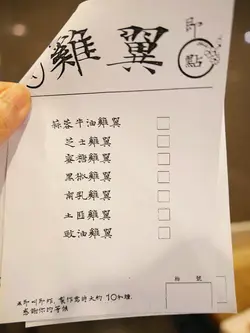 雞翼
即點
蒜蓉牛油雞翼
芝士雞翼
蜜糖雞翼
黑椒雞翼
南乳雞翼
土匪雞翼
豉油雞翼
枱號
*即叫即炸,製作需時大約10分鐘,
感謝你的等候